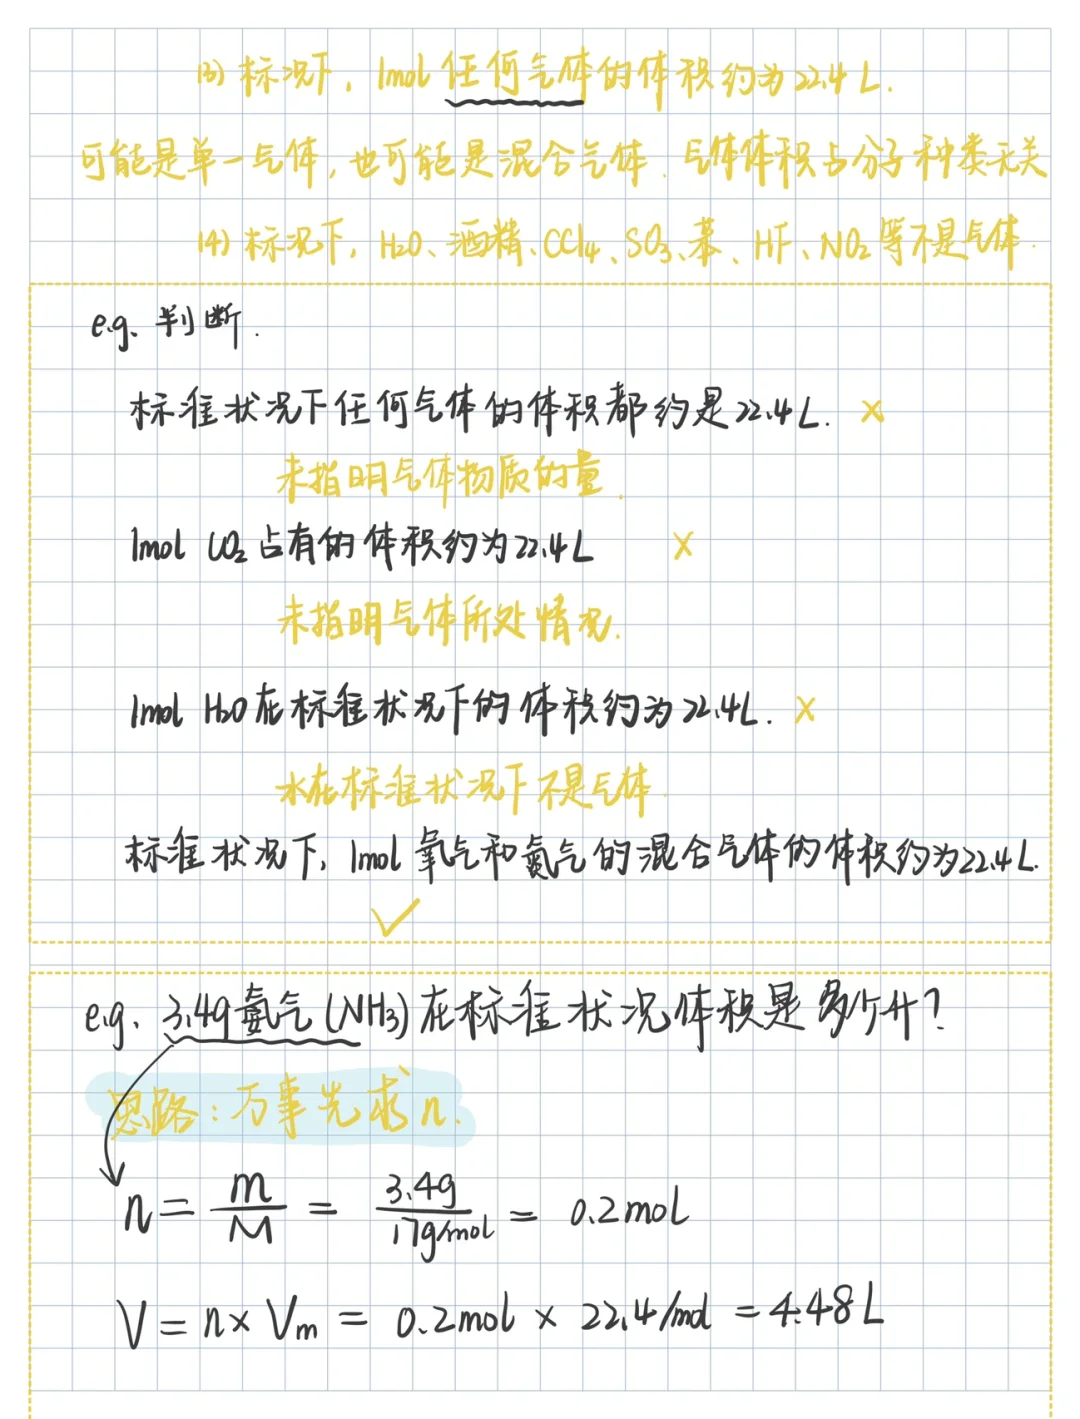 (3) 标况下，1mol 任何气体的体积约为22.4 L.
可能是单一气体，也可能是混合气体. 气体体积占分子种类无关
(4) 标况下，H₂O、酒精、CCl₄、SO₃、苯、HF、NO₂ 等不是气体.
e.g. 判断.
标准状况下任何气体的体积都约是22.4 L. ×
未指明气体物质的量.
1mol CO₂ 占有的体积约为22.4 L ×
未指明气体所处情况.
1mol H₂O 在标准状况下的体积约为22.4L. ×
水在标准状况下不是气体.
标准状况下，1mol 氧气和氮气的混合气体的体积约为22.4 L.
✓
e.g. 3.4g氨气(NH₃)在标准状况体积是多少升？
思路：万事先求n.
n = m/M = 3.4g/17g/mol = 0.2mol
V = n × Vm = 0.2mol × 22.4/mol = 4.48 L